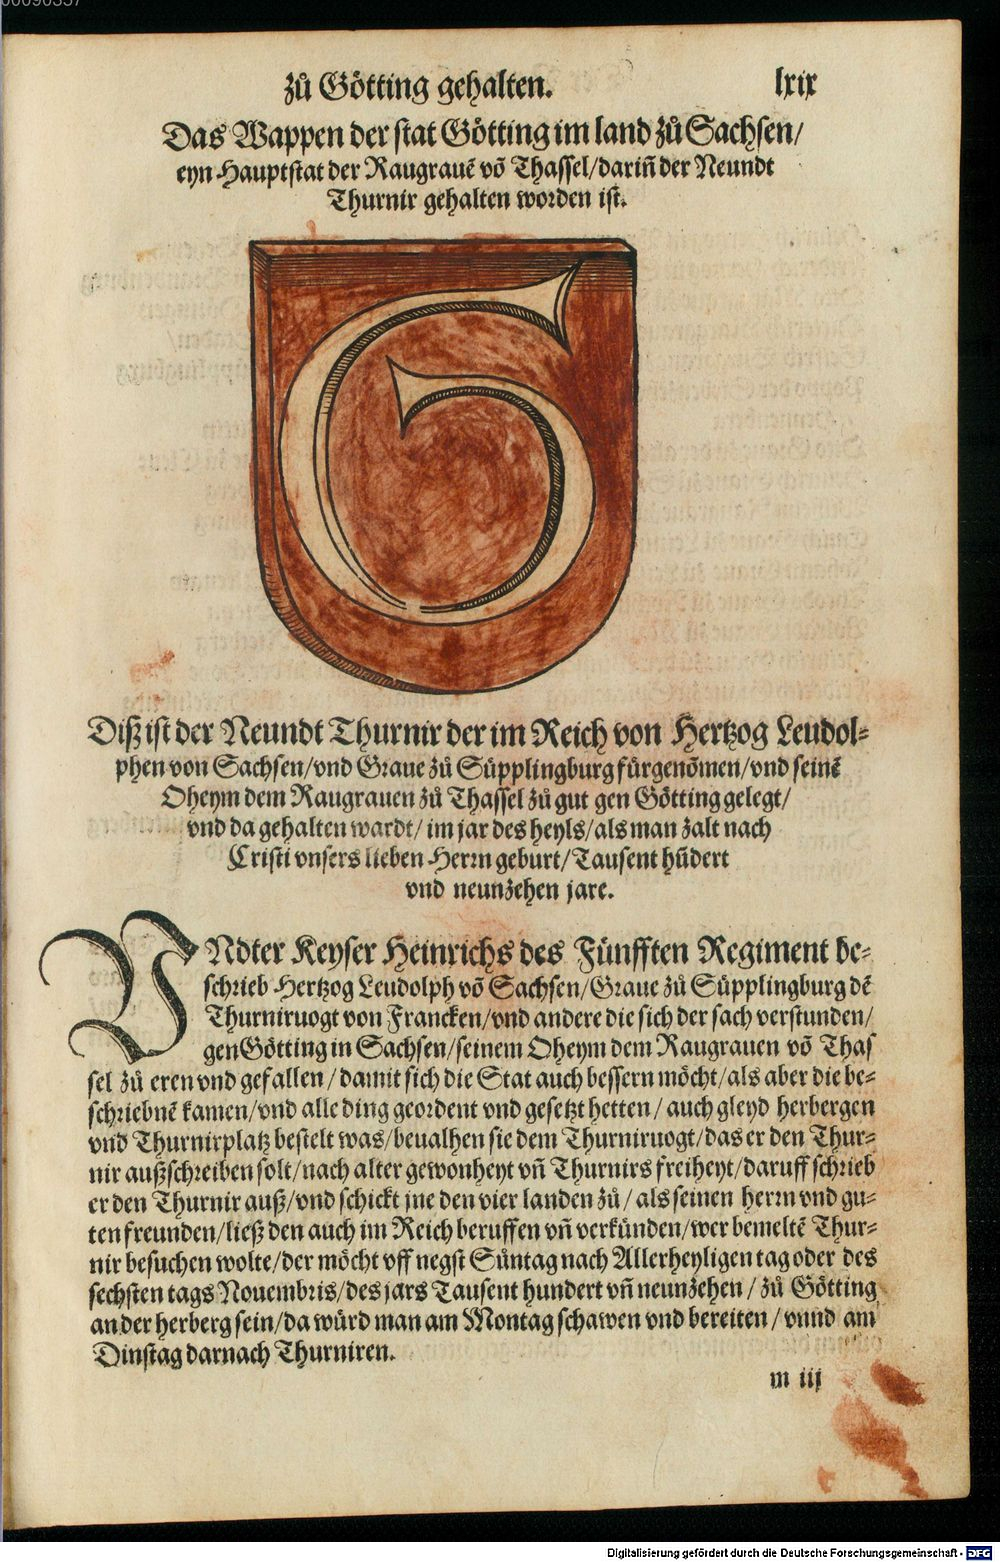 zů Götting gehalten. lxix
Das Wappen der stat Götting im land zů Sachsen/
eyn Hauptstat der Raugrauẽ võ Thassel/dariñ der Neundt
Thurnir gehalten worden ist.
G
Diß ist der Neundt Thurnir der im Reich von Hertzog Leudol-
phen von Sachsen/vnd Graue zů Süpplingburg fürgenõmen/vnd seinẽ
Oheym dem Raugrauen zů Thassel zů gut gen Götting gelegt/
vnd da gehalten wardt/ im jar des heyls/als man zalt nach
Cristi vnsers lieben Herrn geburt/Tausent hũdert
vnd neunzehen jare.
VNdter Keyser Heinrichs des Fünfften Regiment be-
schrieb Hertzog Leudolph võ Sachsen/Graue zů Süpplingburg dẽ
Thurniruogt von Francken/vnd andere die sich der sach verstunden/
gen Götting in Sachsen/seinem Oheym dem Raugrauen võ Thas
sel zů eren vnd gefallen/damit sich die Stat auch bessern möcht/als aber die be-
schriebnẽ kamen/vnd alle ding geordent vnd gesetzt hetten/ auch gleyd herbergen
vnd Thurnirplatz bestelt was/beualhen sie dem Thurniruogt/das er den Thur-
nir außschreiben solt/nach alter gewonheyt vñ Thurnirs freiheyt/daruff schrieb
er den Thurnir auß/vnd schickt jne den vier landen zů/ als seinen herrn vnd gu-
ten freunden/ließ den auch im Reich beruffen vñ verkünden/wer bemeltẽ Thur-
nir besuchen wolte/der möcht vff negst Suntag nach Allerheyligen tag oder des
sechsten tags Nouembris/des jars Tausent hundert vñ neunzehen/ zů Götting
an der herberg sein/da würd man am Montag schawen vnd bereiten/ vnnd am
Dinstag darnach Thurniren.
m iij
Digitalisierung gefördert durch die Deutsche Forschungsgemeinschaft - DFG